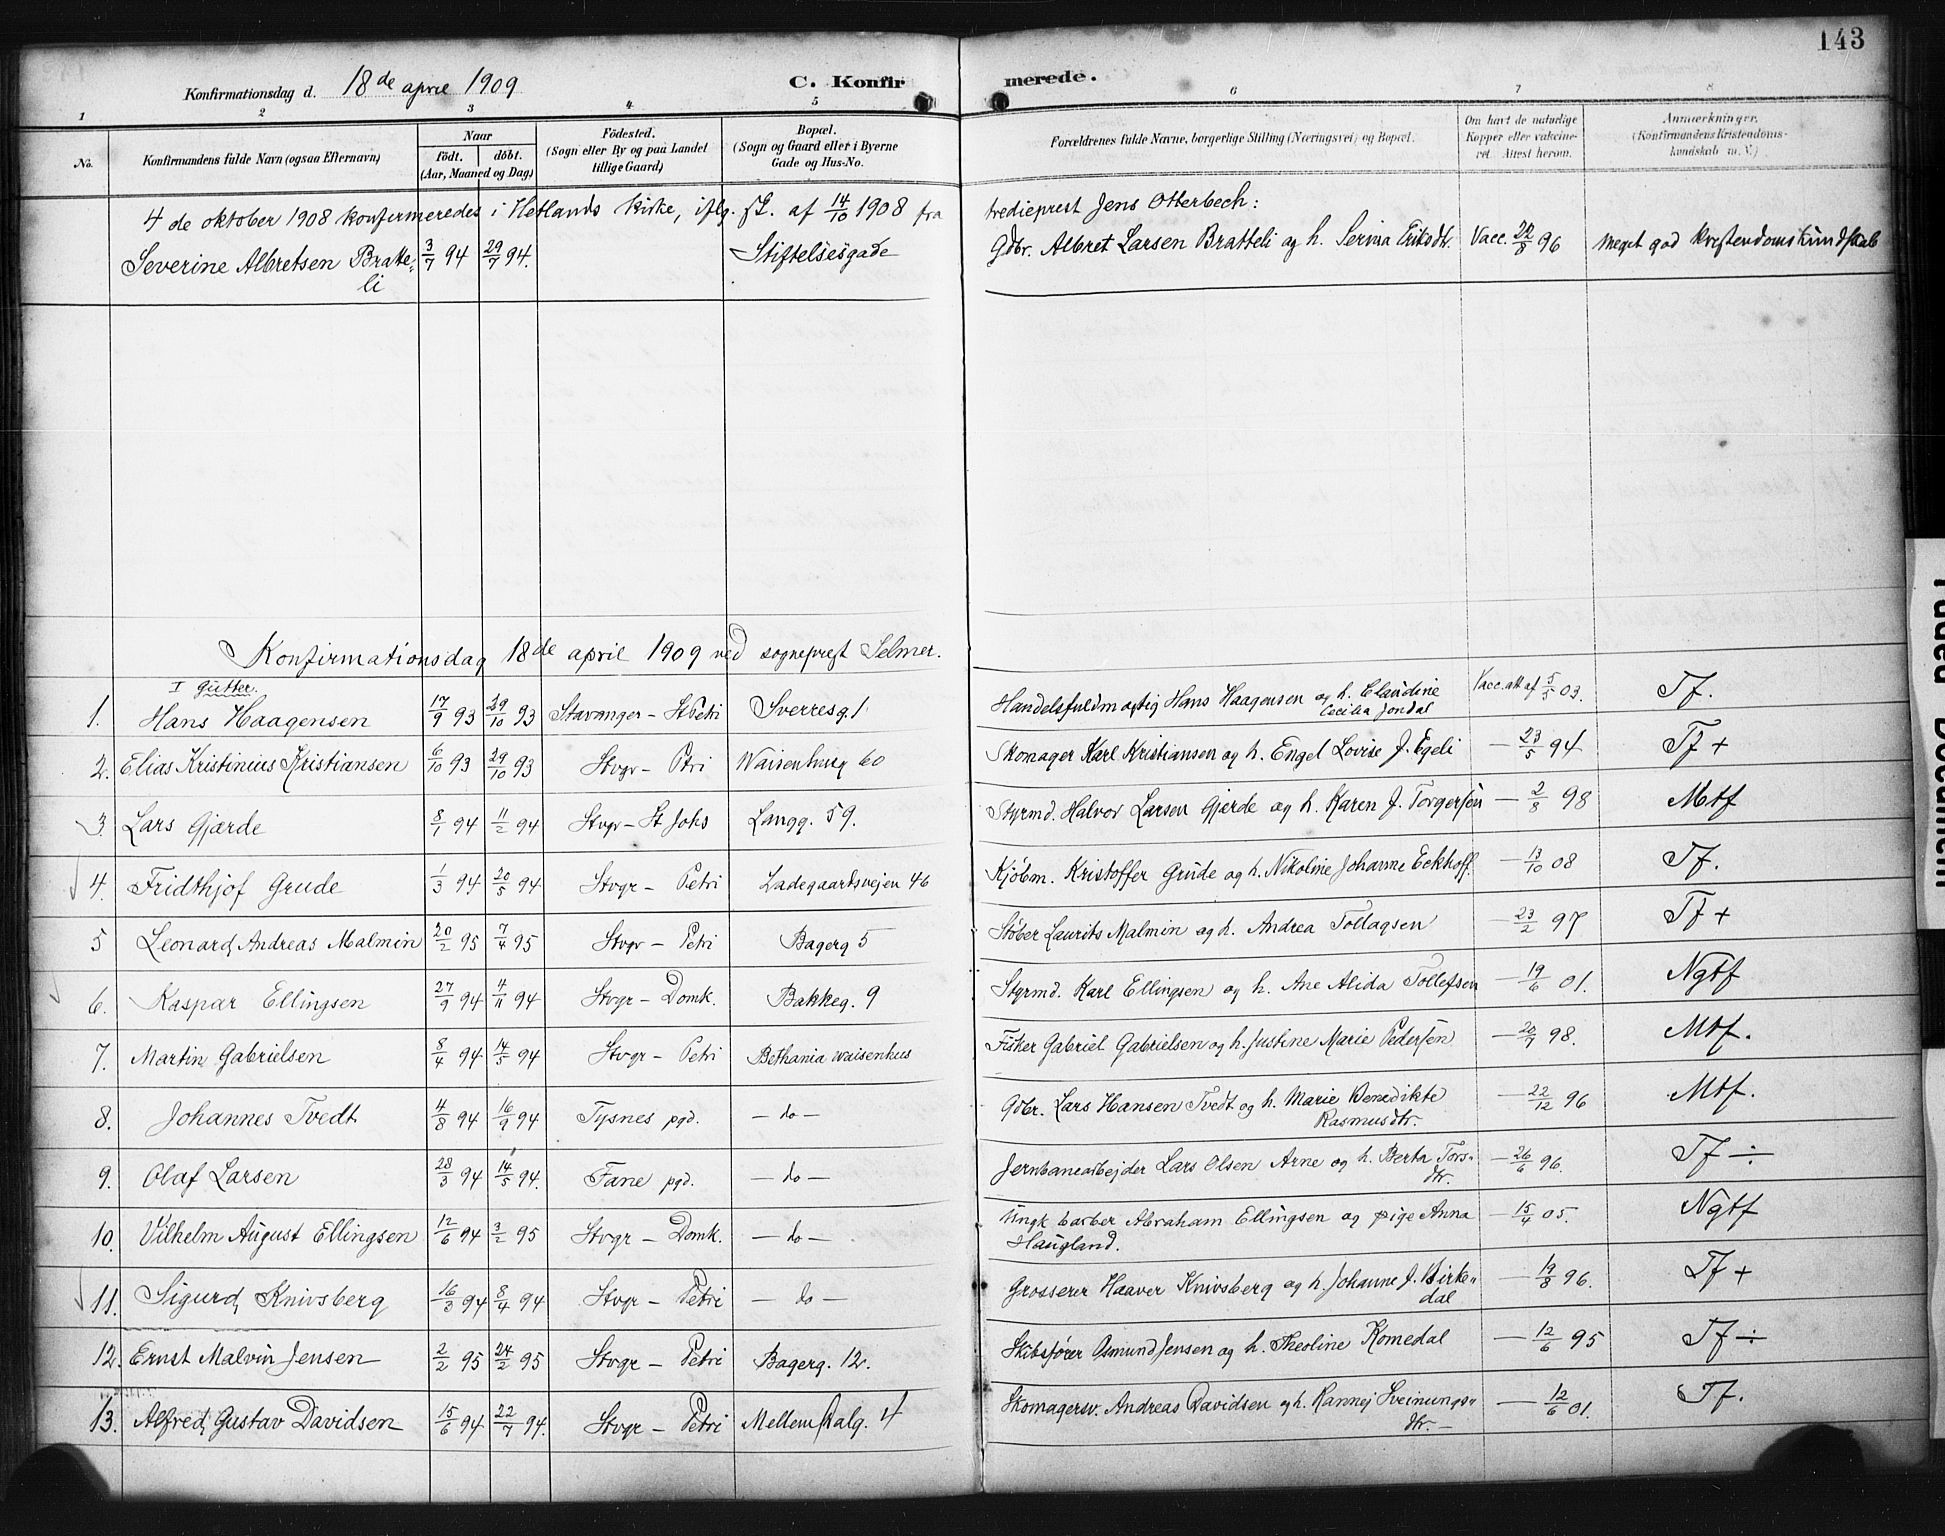 143
Konfirmationsdag d. 18de april 1909 C. Konfirmerede.
1 2 3 4 5 6 7 8
No. Konfirmandens fulde Navn (ogsaa Efternavn) Naar født. døbt. (Aar, Maaned og Dag) Fødested. (Sogn eller By og paa Landet tillige Gaard) Bopæl. (Sogn og Gaard eller i Byerne Gade og Hus-No. Forældrenes fulde Navne, borgerlige Stilling (Næringsvei) og Bopæl. Om havt de naturlige Kopper eller vaccineret. Attest herom. Anmærkninger. (Konfirmandens Kristendomskundskab m. V.)
4de oktober 1908 konfirmeredes i Hetlands kirke, iflg. af 14/10 1908 fra tredieprest Jens Otterbech:
Severine Albretsen Bratteli 3/7 94 29/7 94. Stiftelsesgade Gdbr. Albret Larsen Bratteli og h. Serina Eriksdtr. Vacc. 22/8 96 Meget god kristendomskundskab
Konfirmationsdag 18de april 1909 ved sogneprest Selmer.
I Gutter.
1. Hans Haagensen 17/9 93 29/10 93 Stavanger - St Petri Sverresg. 1 Handelsfuldmægtig Hans Haagensen og h. Claudine Cecilia Jondal Vacc. att af 5/5 03. Tf.
2. Elias Kristinius Kristiansen 6/10 93 29/10 93 Stvgr - Ptri Waisenhusg 60 Skomager Karl Kristiansen og h. Engel Lovise J. Egeli — 23/5 94 Tf +
3. Lars Gjærde 8/1 94 11/2 94 Stvgr - St Johs Langg. 59. Styrmd. Halvor Larsen Gjerde og h. Karen J. Torgersen — 2/8 98 Mtf
4. Fridthjof Grude 1/3 94 20/5 94 Stvgr - Petri Ladegaardsvejen 46 Kjøbm. Kristoffer Grude og h. Nikoline Johanne Eckhoff. — 13/10 08 Tf.
5 Leonard Andreas Malmin 20/2 95 7/4 95 Stvgr - Petri Bagerg 5 Støber Laurits Malmin og h. Andrea Tollagsen — 23/2 97 Tf +
6. Kaspar Ellingsen 27/9 94 4/11 94 Stvgr - Domk. Bakkeg. 9 Styrmd. Karl Ellingsen og h. Ane Alida Tollefsen — 19/6 01. Ngtf
7. Martin Gabrielsen 8/4 94 14/5 94 Stvgr - Petri Bethania waisenhus Fisker Gabriel Gabrielsen og h. Justine Marie Pedersen — 20/7 98. Mtf.
8. Johannes Tvedt 4/8 94 16/9 94 Tysnes pgd. — do — Gdbr. Lars Hansen Tvedt og h. Marie Benedikte Rasmusdtr. — 22/12 96 Mtf.
9. Olaf Larsen 28/3 94 14/5 94. Fane pgd. — do — Jernbanearbejder Lars Olsen Arne og h. Berta Torsdtr. — 26/6 96. Tf ÷
10. Vilhelm August Ellingsen 12/6 94 3/2 95 Stvgr - Domk. — do — Ungk barber Abraham Ellingsen og pige Anna Haugland. — 15/4 05. Ngtf
11. Sigurd Knivsberg 16/3 94 8/4 94 Stvgr - Petri — do — Grosserer Haaver Knivsberg og h. Johanne J. Birkedal — 19/8 96. Tf +
12. Ernst Malvin Jensen 2/2 95 24/2 95 Stvgr - Petri Bagerg. 12. Skibsfører Osmund Jensen og h. Theoline Komedal — 12/6 95 Tf ÷
13. Alfred Gustav Davidsen 15/6 94 22/7 94. Stvgr - Petri Mellemstralg. 4 Skomagersv. Andreas Davidsen og h. Rannej Sveinungsdtr. — 12/6 01. Tf.